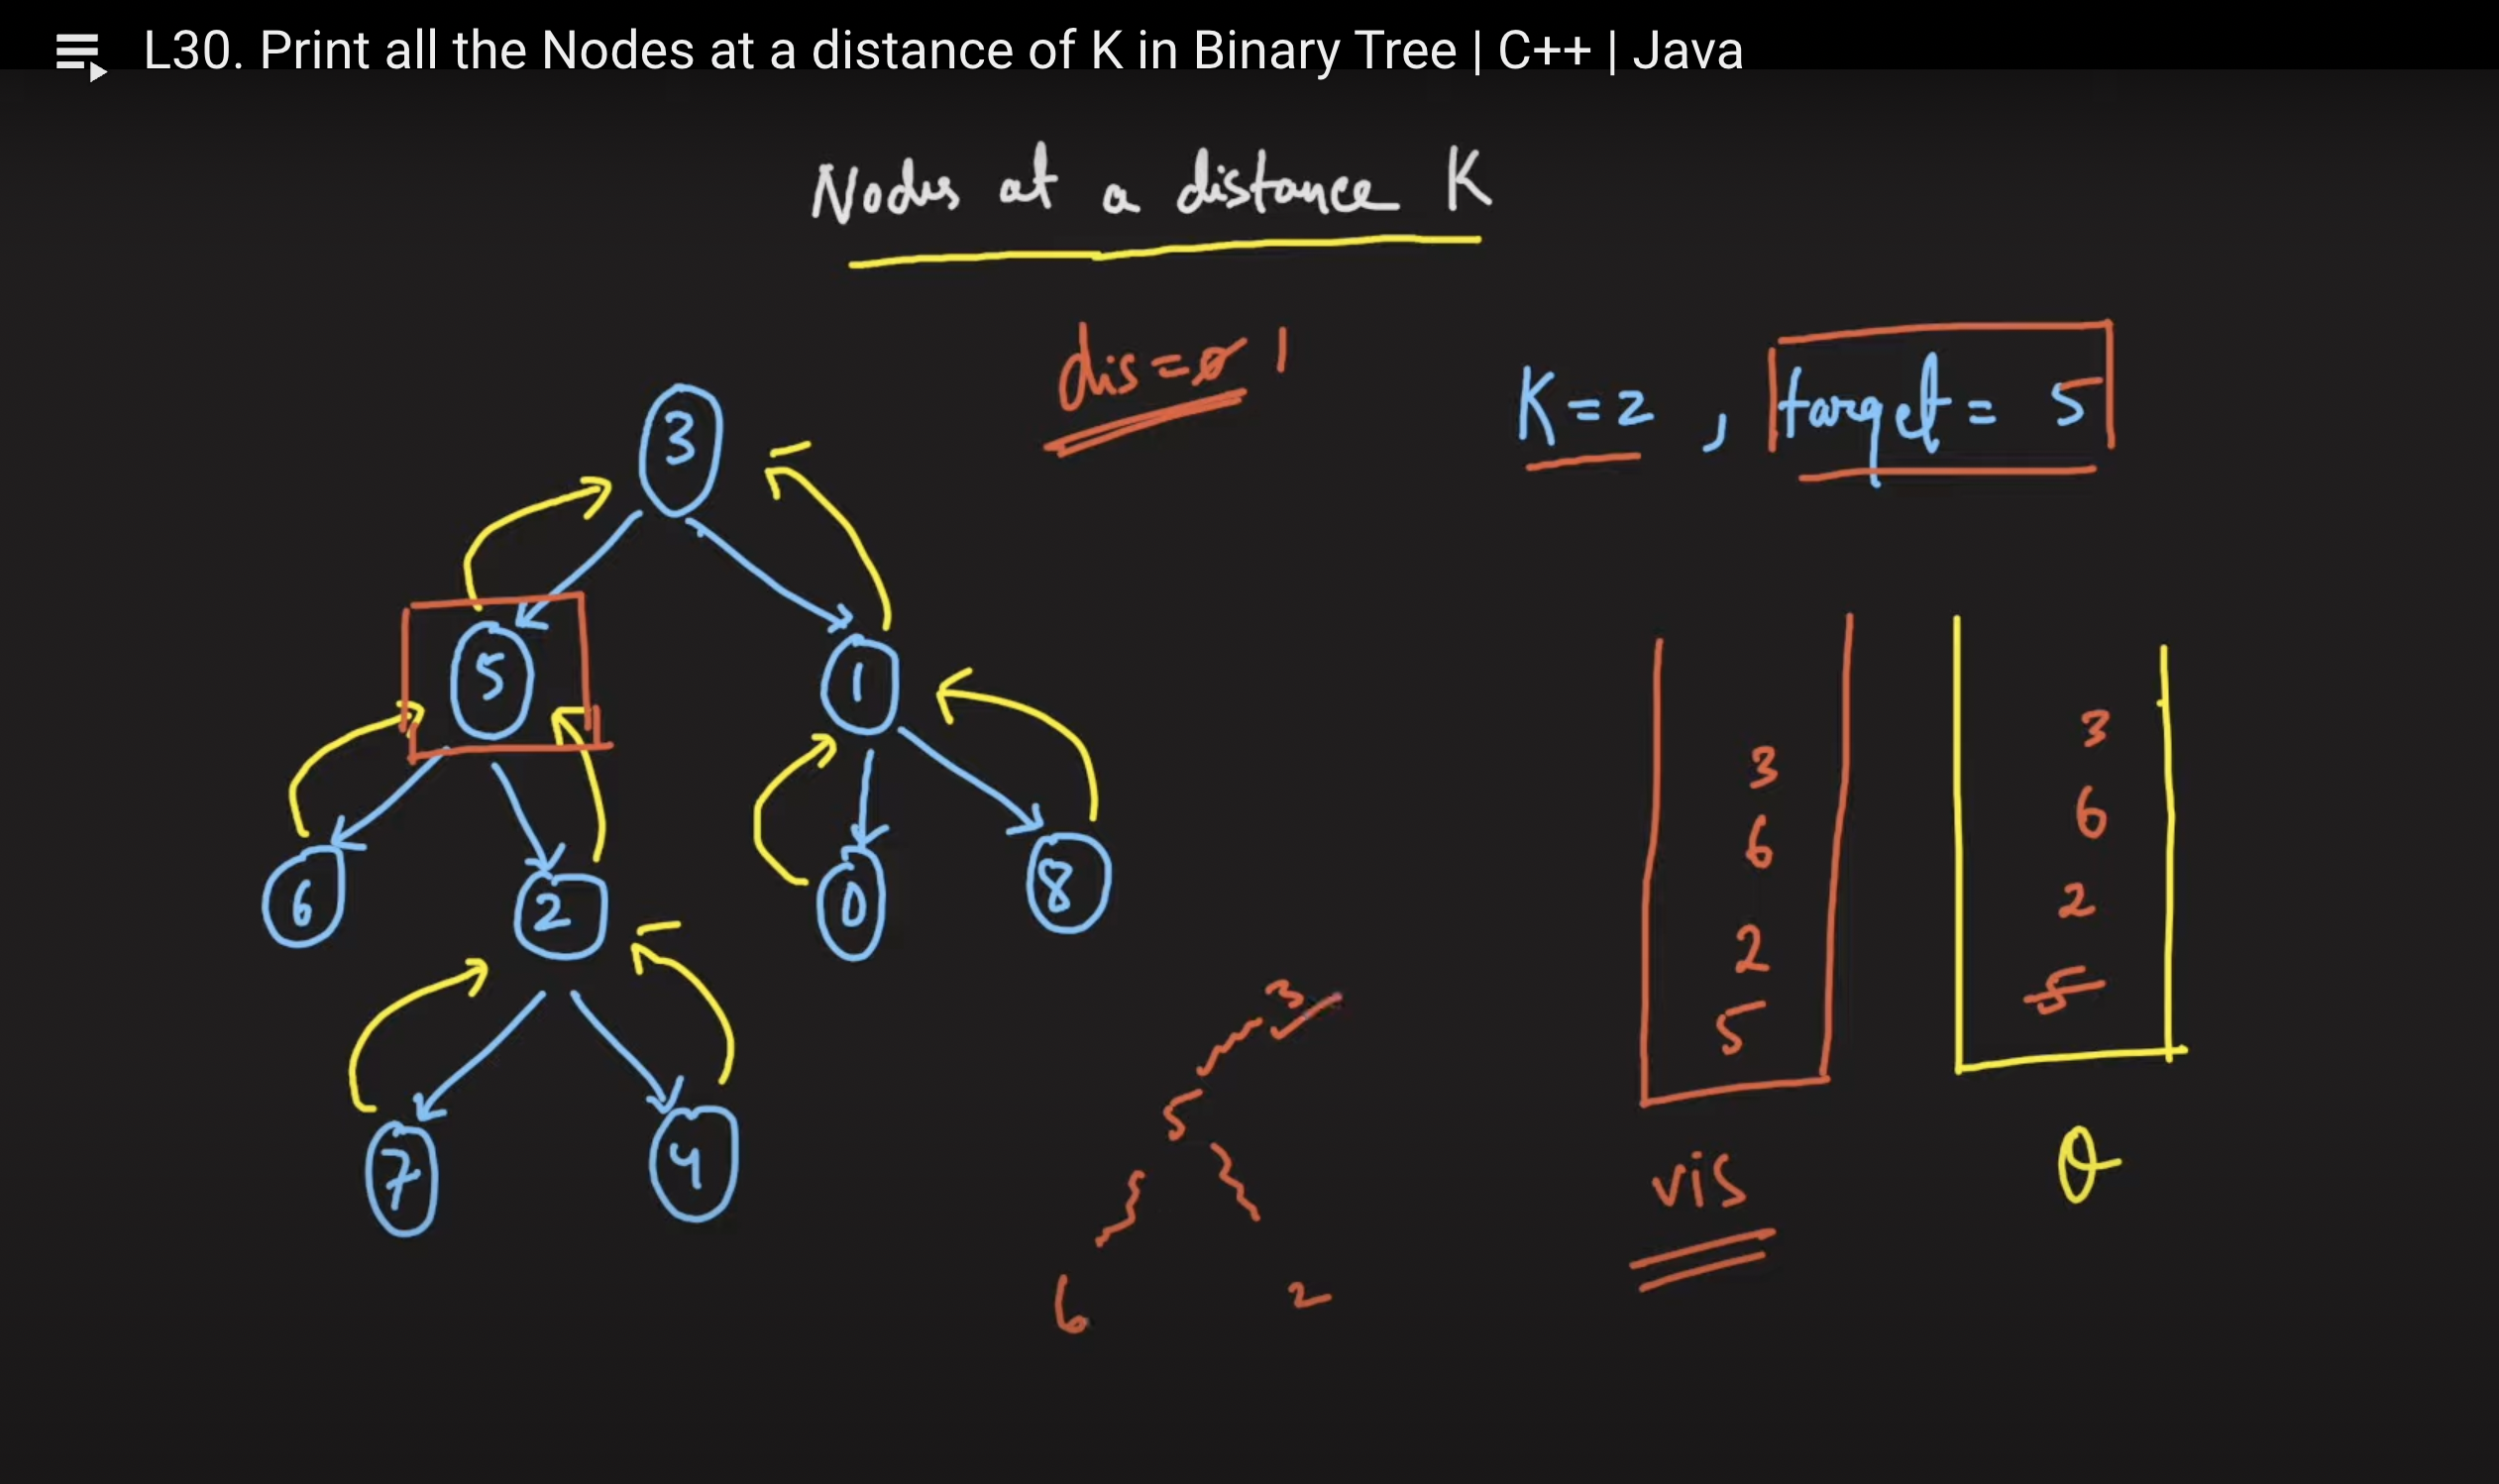 L30. Print all the Nodes at a distance of K in Binary Tree | C++ | Java
Nodes at a distance K
dis=0 1
K=2 , target = 5
3
5
1
6
2
0
8
7
4
3
5
6
2
3
6
2
5
vis
3
6
2
5
Q